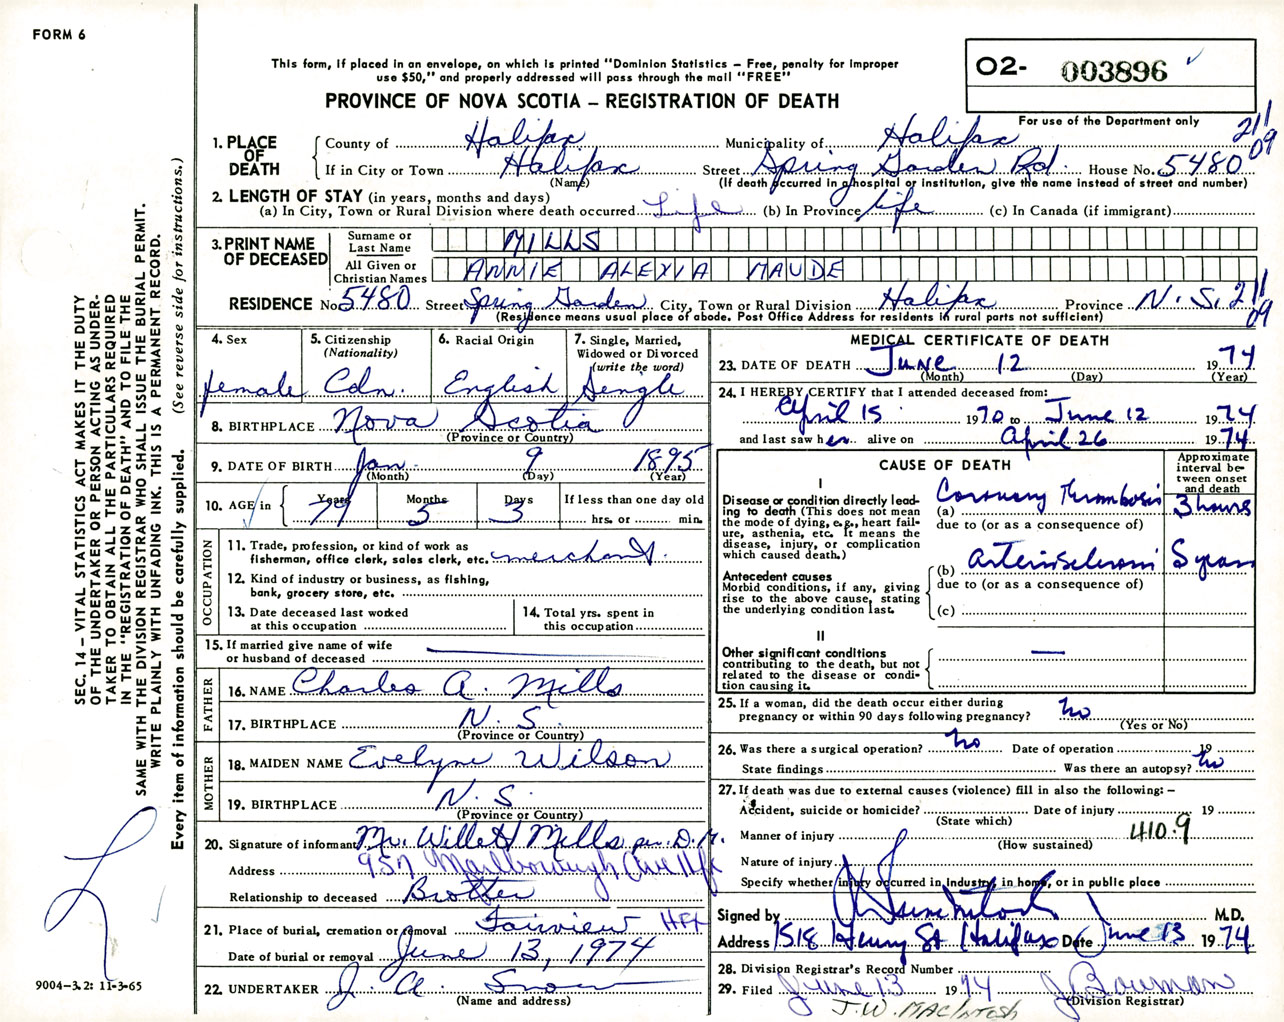 FORM 6
This form, if placed in an envelope, on which is printed "Dominion Statistics – Free, penalty for improper
use $50," and properly addressed will pass through the mail "FREE"
PROVINCE OF NOVA SCOTIA – REGISTRATION OF DEATH
02- 003896
For use of the Department only
211
09
1. PLACE OF DEATH
County of Halifax Municipality of Halifax
If in City or Town Halifax Street Spring Garden Rd. House No. 5480
(Name) (If death occurred in a hospital or institution, give the name instead of street and number)
2. LENGTH OF STAY (in years, months and days)
(a) In City, Town or Rural Division where death occurred Life (b) In Province life (c) In Canada (if immigrant)
3. PRINT NAME OF DECEASED
Surname or Last Name MILLS
All Given or Christian Names ANNIE ALEXIA MAUDE
RESIDENCE No. 5480 Street Spring Garden City, Town or Rural Division Halifax Province N.S. 211
09
(Residence means usual place of abode. Post Office Address for residents in rural parts not sufficient)
4. Sex female
5. Citizenship (Nationality) Cdn.
6. Racial Origin English
7. Single, Married, Widowed or Divorced (write the word) Single
8. BIRTHPLACE Nova Scotia
(Province or Country)
9. DATE OF BIRTH Jan. 9 1895
(Month) (Day) (Year)
10. AGE in Years 79 Months 5 Days 3 If less than one day old
hrs. or min.
OCCUPATION
11. Trade, profession, or kind of work as
fisherman, office clerk, sales clerk, etc. merchant.
12. Kind of industry or business, as fishing,
bank, grocery store, etc.
13. Date deceased last worked
at this occupation
14. Total yrs. spent in
this occupation
15. If married give name of wife
or husband of deceased
FATHER
16. NAME Charles A. Mills
17. BIRTHPLACE N.S.
(Province or Country)
MOTHER
18. MAIDEN NAME Evelyne Wilson
19. BIRTHPLACE N.S.
(Province or Country)
20. Signature of informant Mr. Willett Mills per D.
Address 957 Marlborough Ave Hfx
Relationship to deceased Brother
21. Place of burial, cremation or removal Fairview Hfx
Date of burial or removal June 13, 1974
22. UNDERTAKER J. A. Snow
(Name and address)
MEDICAL CERTIFICATE OF DEATH
23. DATE OF DEATH June 12 1974
(Month) (Day) (Year)
24. I HEREBY CERTIFY that I attended deceased from:
April 15 1970 to June 12 1974
and last saw her alive on April 26 1974
CAUSE OF DEATH
Approximate interval between onset and death
I
Disease or condition directly leading to death (This does not mean the mode of dying, e.g., heart failure, asthenia, etc. It means the disease, injury, or complication which caused death.)
(a) Coronary Thrombosis 3 hours
due to (or as a consequence of)
Antecedent causes
Morbid conditions, if any, giving rise to the above cause, stating the underlying condition last.
(b) Arteriosclerosis 5 years
due to (or as a consequence of)
(c)
II
Other significant conditions
contributing to the death, but not related to the disease or condition causing it.
25. If a woman, did the death occur either during
pregnancy or within 90 days following pregnancy? no
(Yes or No)
26. Was there a surgical operation? no Date of operation 19
State findings Was there an autopsy? no
27. If death was due to external causes (violence) fill in also the following: –
Accident, suicide or homicide? Date of injury 19
(State which)
Manner of injury 410.9
(How sustained)
Nature of injury
Specify whether injury occurred in industry, in home, or in public place
Signed by M.D.
Address 1518 Henry St Halifax Date June 13 1974
28. Division Registrar's Record Number
29. Filed June 13 1974 J Bowman
(Division Registrar)
J.W. MACINTOSH
SEC. 14 – VITAL STATISTICS ACT MAKES IT THE DUTY
OF THE UNDERTAKER OR PERSON ACTING AS UNDER-
TAKER TO OBTAIN ALL THE PARTICULARS REQUIRED
IN THE "REGISTRATION OF DEATH" AND TO FILE THE
SAME WITH THE DIVISION REGISTRAR WHO SHALL ISSUE THE BURIAL PERMIT.
WRITE PLAINLY WITH UNFADING INK. THIS IS A PERMANENT RECORD.
Every item of information should be carefully supplied. (See reverse side for instructions.)
9004-3.2: 11-3-65